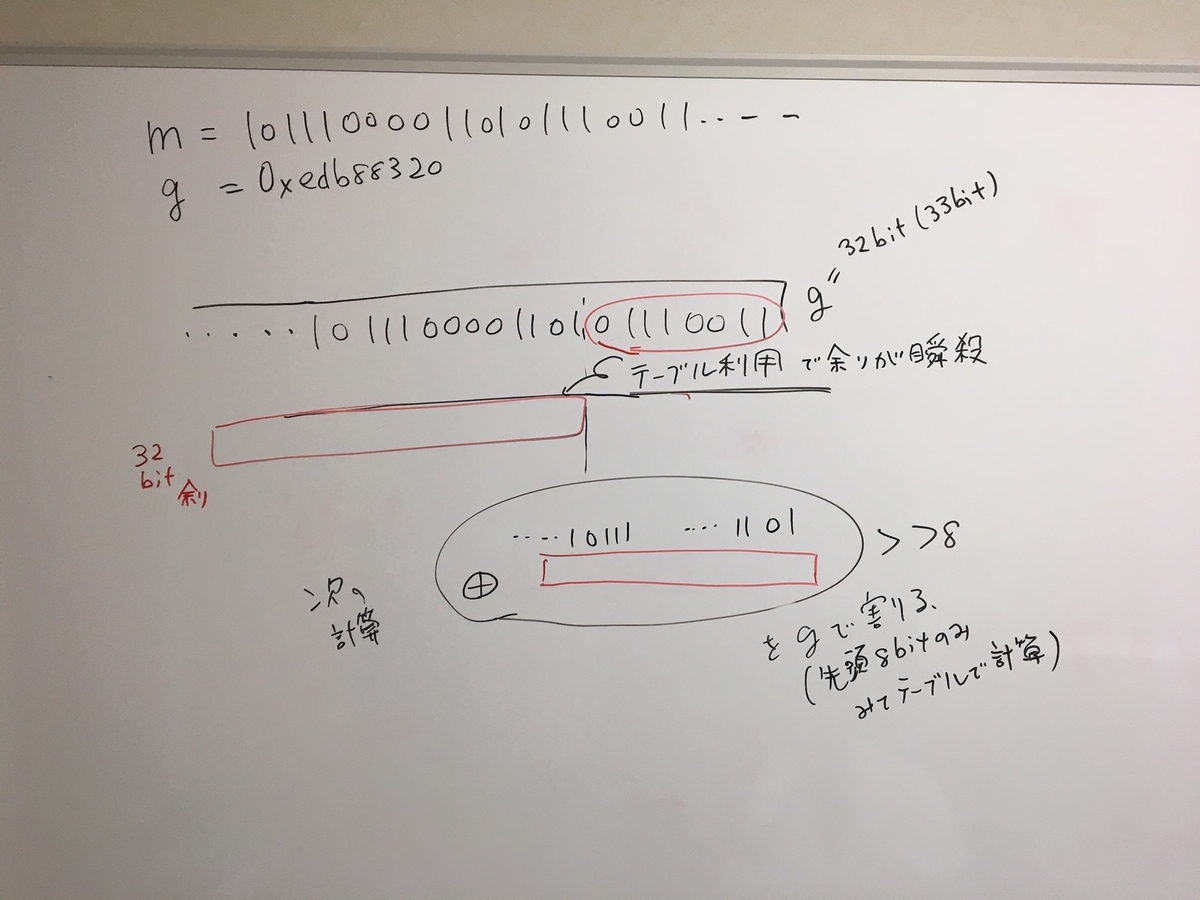 m = 1011100001101011100 11..--
g = 0xedb88320
32bit (33bit)
.....1011100001101011100 11 g
テーブル利用で余りが瞬殺
32
bit
余り
....10111 ....1101 >>8
⊕
次の
計算
をgで割りる、
(先頭8bitのみ
みてテーブルで計算)